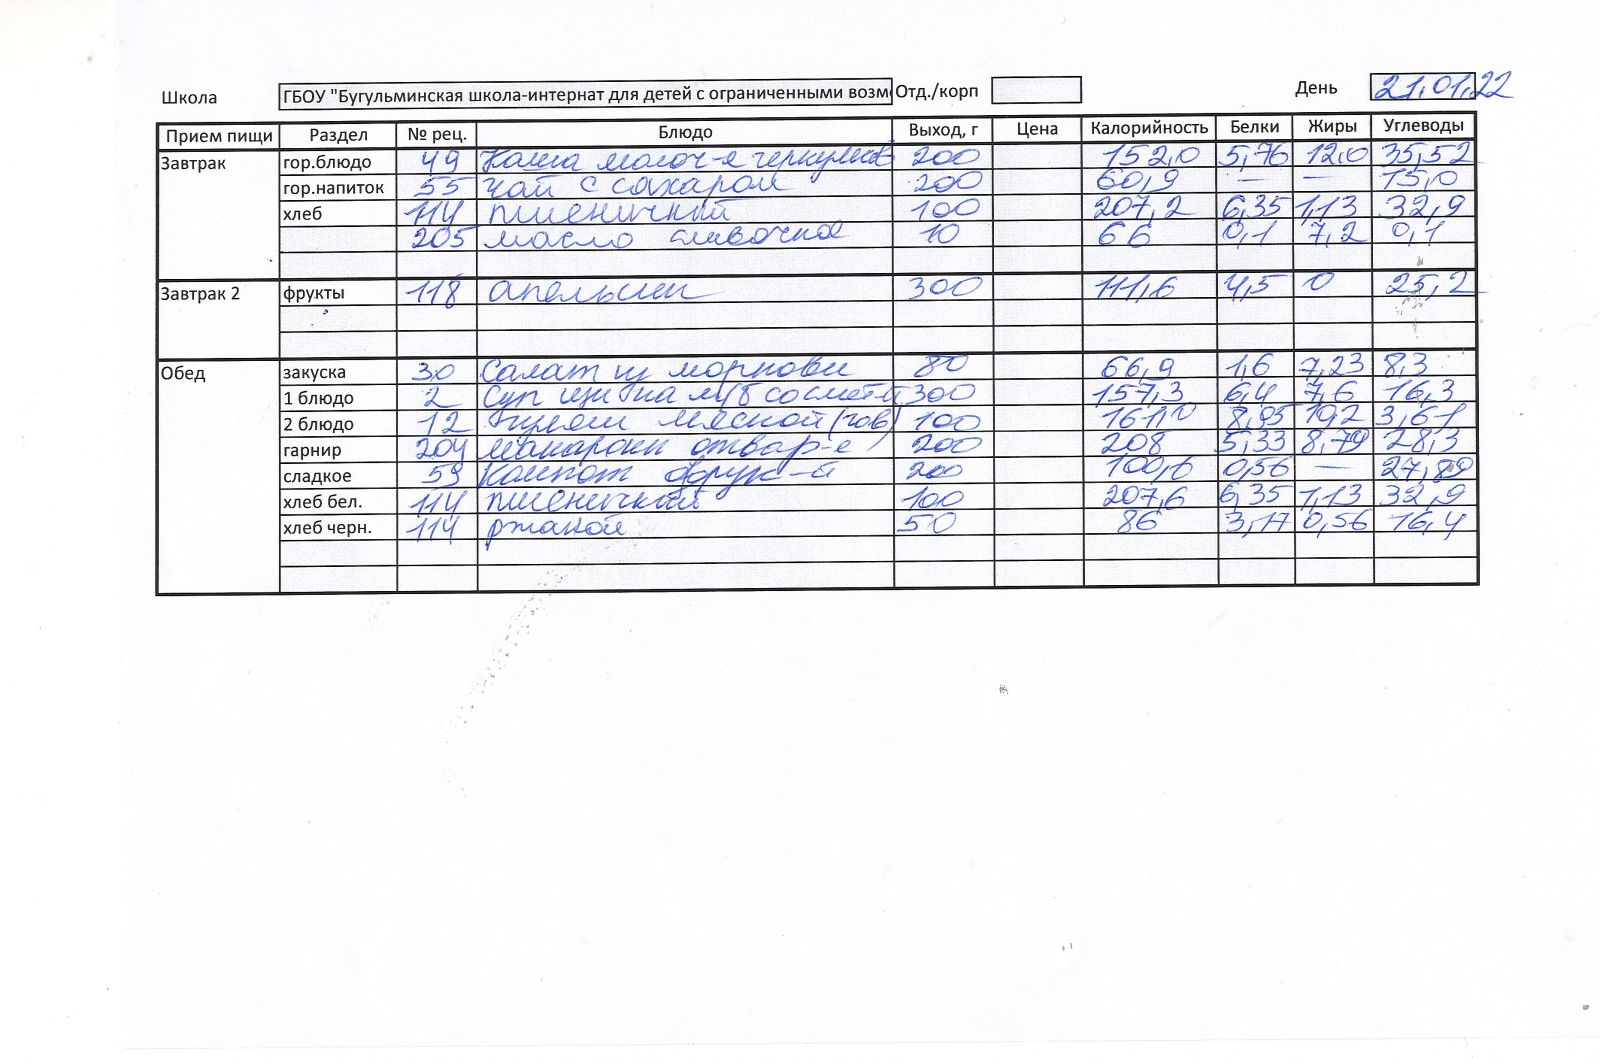 Школа ГБОУ "Бугульминская школа-интернат для детей с ограниченными возм Отд./корп День 21.01.22
Прием пищи Раздел № рец. Блюдо Выход, г Цена Калорийность Белки Жиры Углеводы
Завтрак гор.блюдо 49 Каша молоч-я геркулесов 200 152,0 5,76 12,0 35,52
гор.напиток 55 чай с сахаром 200 60,9 — — 15,0
хлеб 114 пшеничный 100 207,2 6,35 1,13 32,9
205 масло сливочное 10 66 0,1 7,2 0,1
Завтрак 2 фрукты 118 апельсин 300 111,6 4,5 0 25,2
Обед закуска 30 Салат из моркови 80 66,9 1,6 7,23 8,3
1 блюдо 2 Суп щи на м/б со смет-й 300 157,3 6,4 7,6 16,3
2 блюдо 12 гуляш мясной (гов) 100 161,0 8,85 10,2 3,61
гарнир 204 макароны отвар-е 200 208 5,33 8,79 28,3
сладкое 59 Компот фрук-й 200 100,6 0,56 — 27,89
хлеб бел. 114 пшеничный 100 207,6 6,35 1,13 32,9
хлеб черн. 114 ржаной 50 86 3,17 0,56 16,4